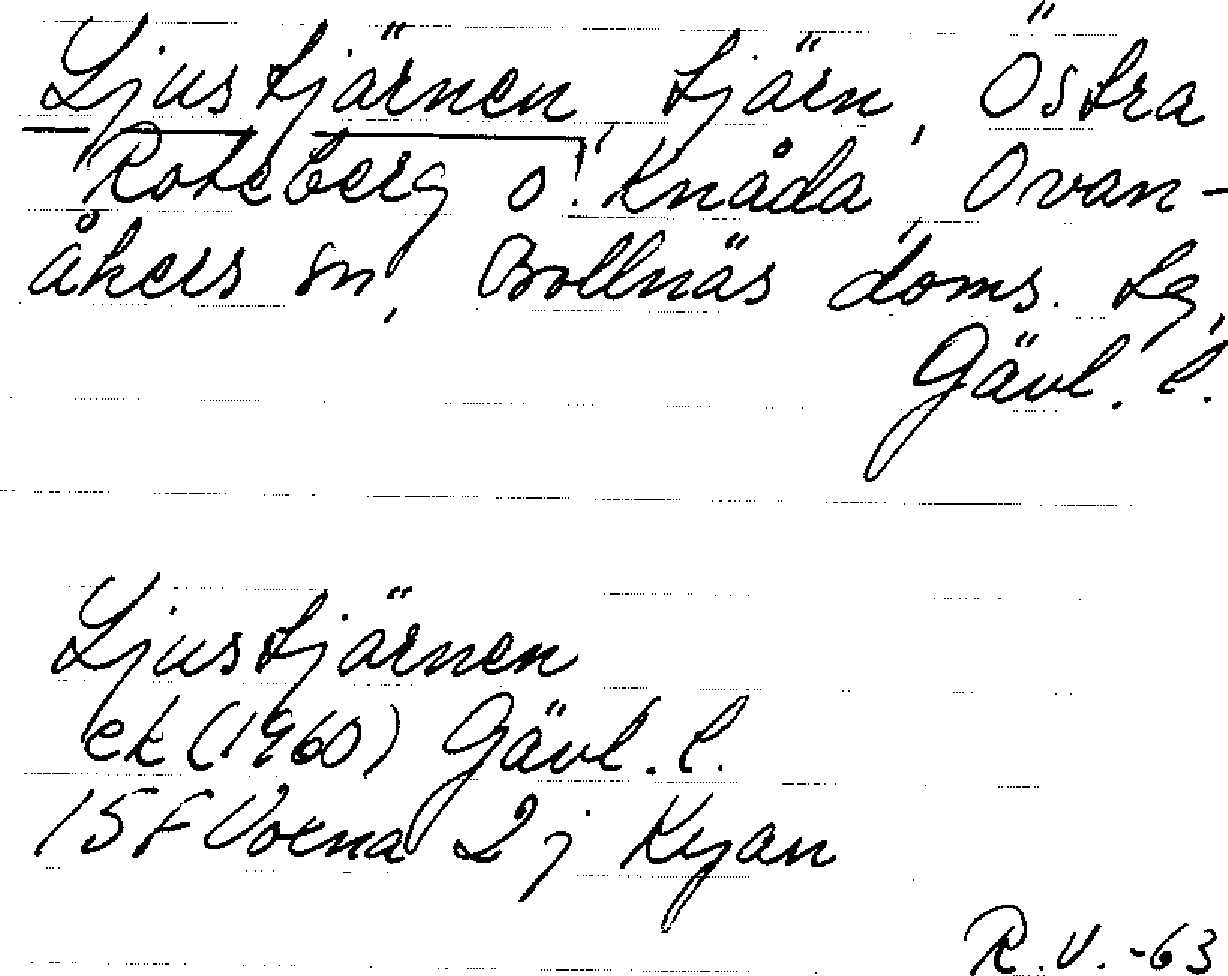 Ljustjärnen, tjärn, Östra
Roteberg o. Knåda, Ovan-
åkers sn, Bollnäs doms. tg,
Gävl. l.
Ljustjärnen
ek (1960) Gävl. l.
15F Voxna 2j Kyan
R.V. -63